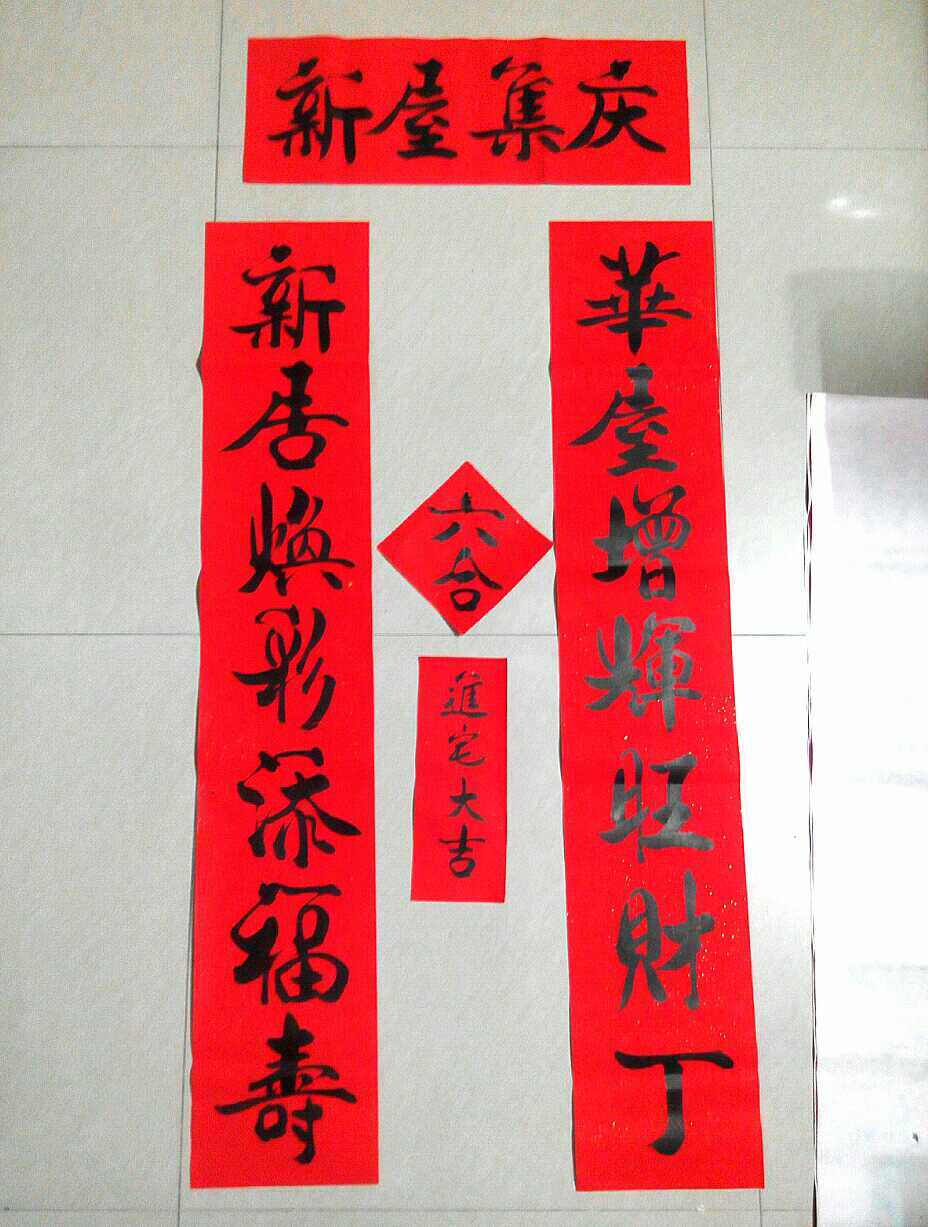 新屋集庆
華屋增輝旺財丁
新居煥彩添福壽
六合
進宅大吉